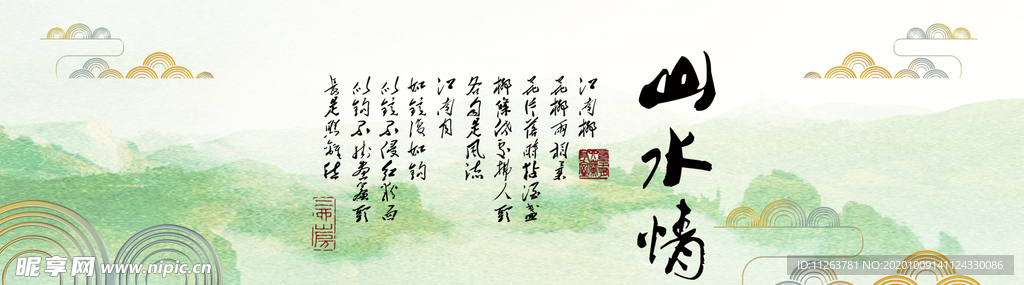 山水情
江南柳
花柳两相柔
花片落时黏酒盏
柳条低处拂人头
各自是风流
江南月
如镜复如钩
似镜不侵红粉面
似钩不挂画帘头
长是照离愁
昵享网 www.nipic.cn
ID:11263781 NO:20201009141124330086